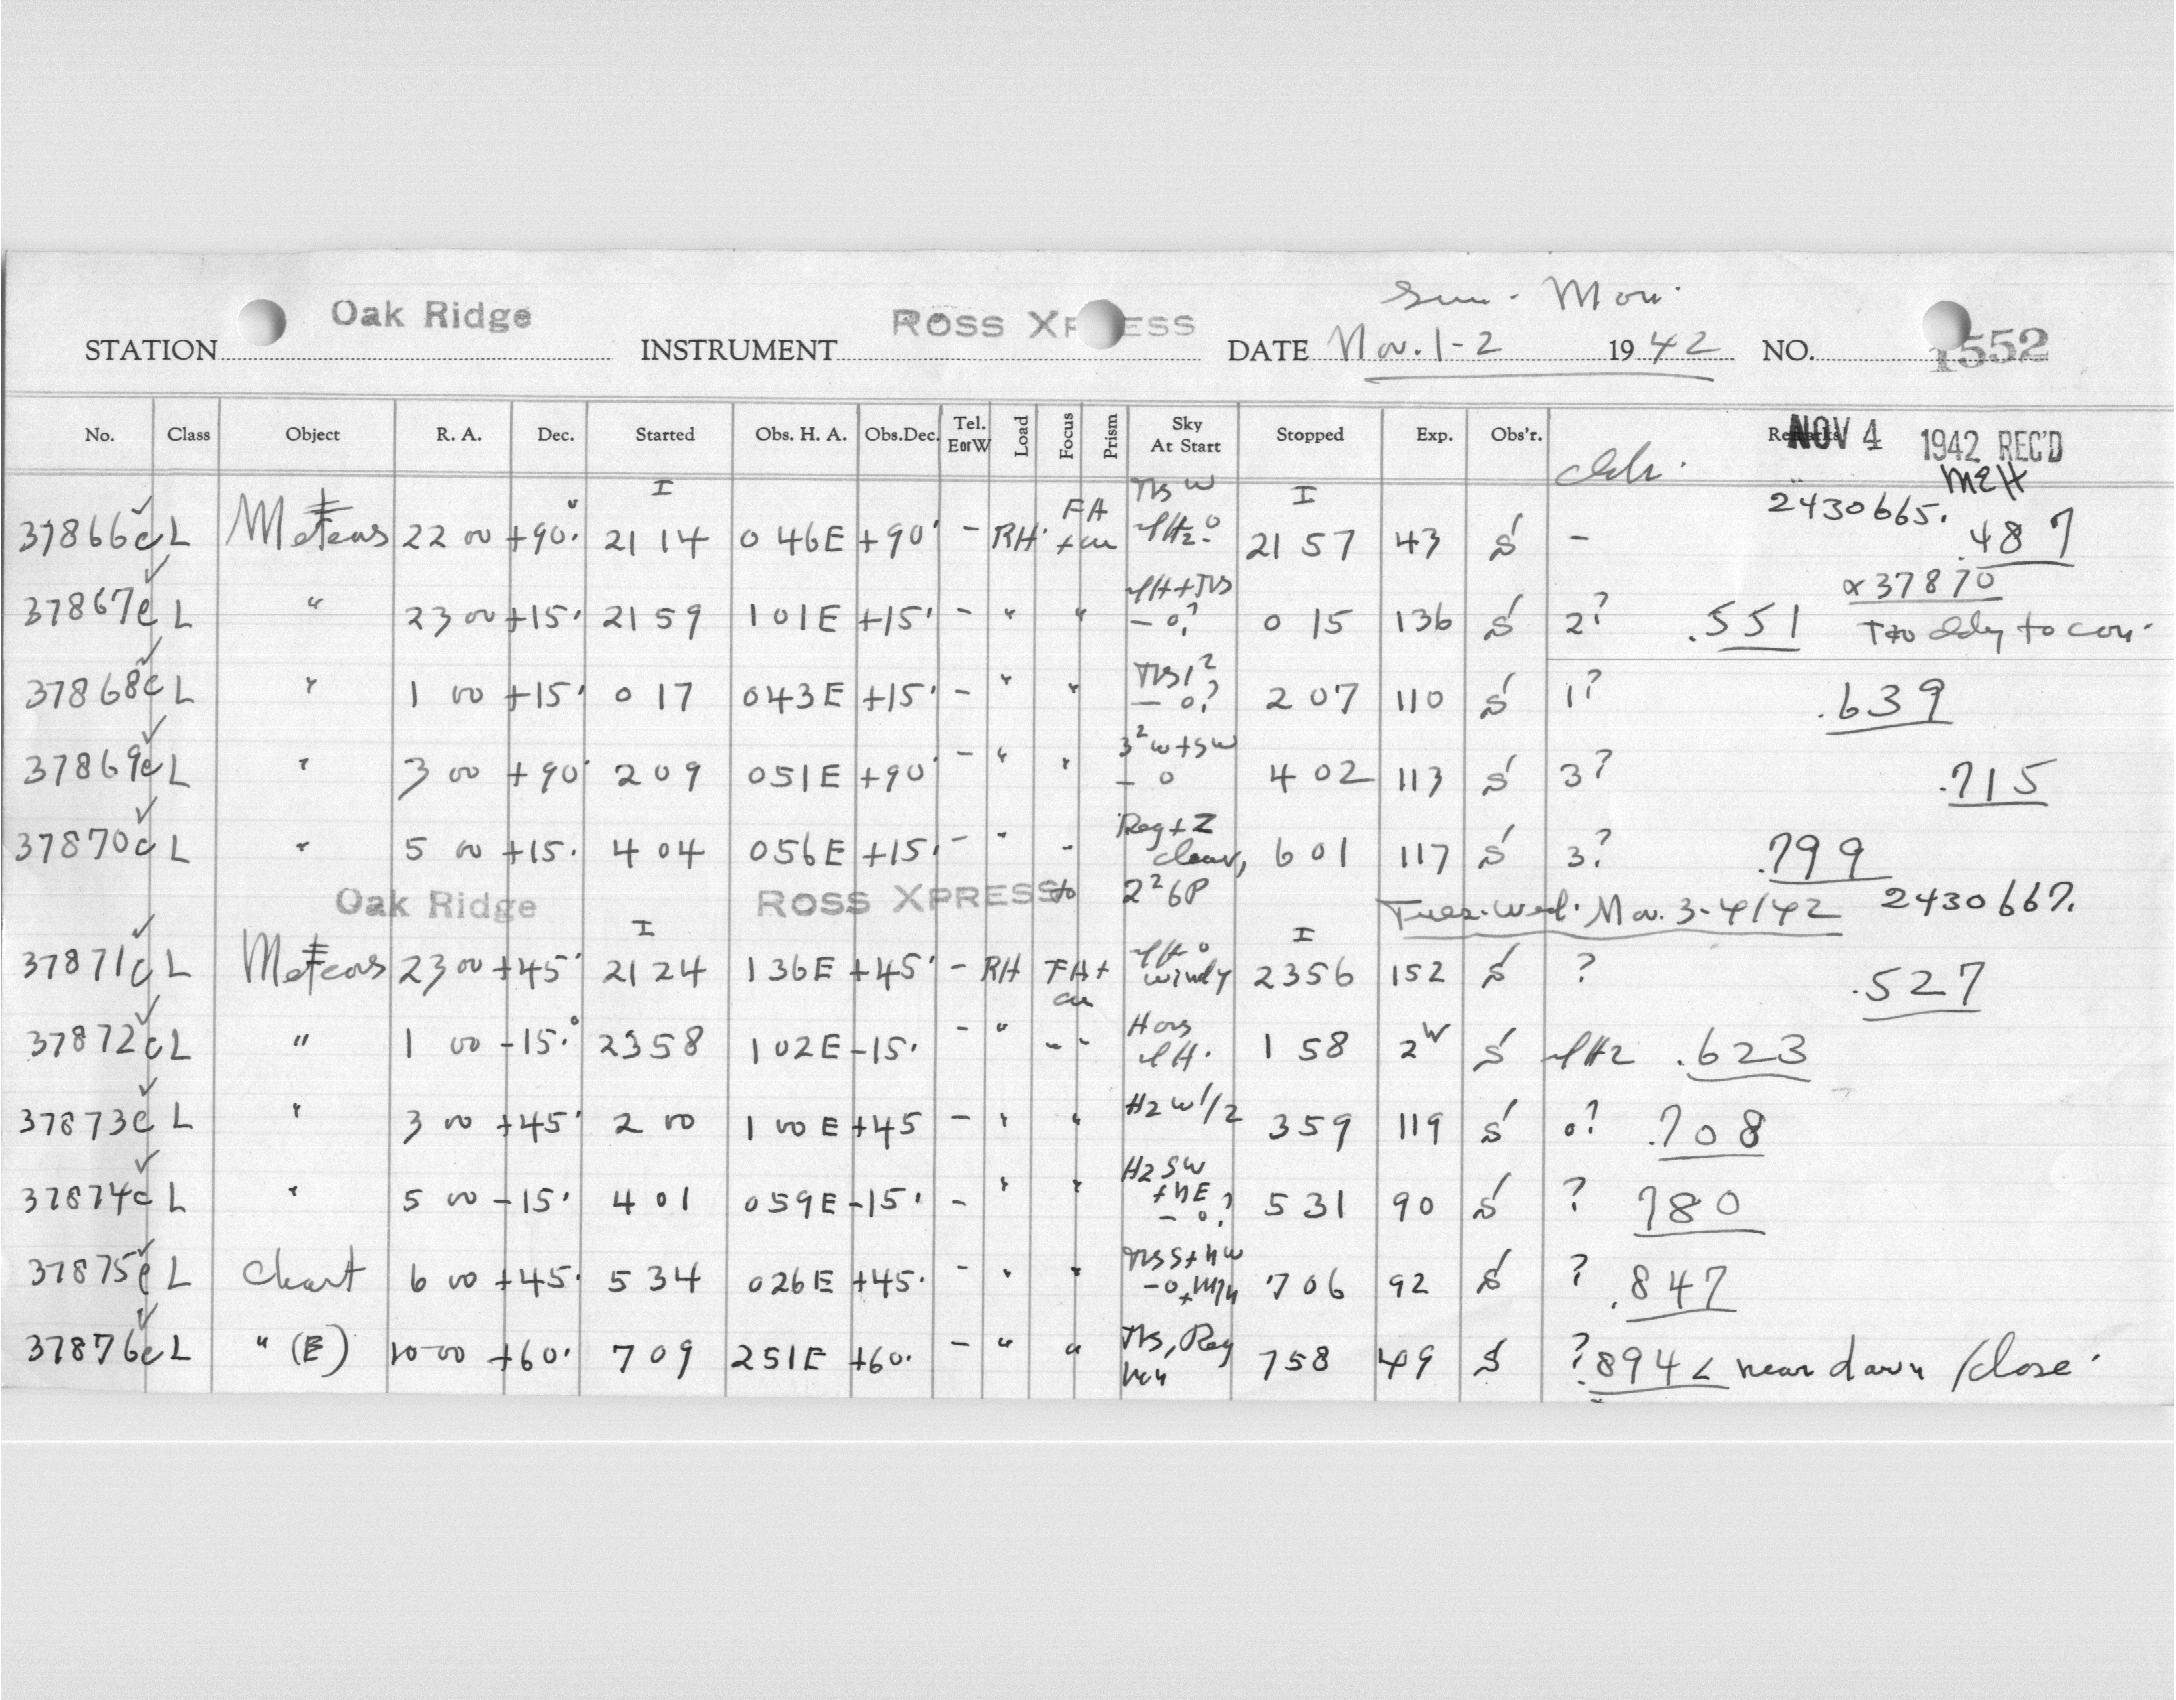 Sun - Mon.
STATION Oak Ridge INSTRUMENT ROSS XPRESS DATE Nov. 1-2 1942 NO. 1552
No. Class Object R. A. Dec. Started Obs. H. A. Obs.Dec. Tel. E or W Load Focus Prism Sky At Start Stopped Exp. Obs'r. Remarks
NOV 4 1942 REC'D
I I 2430665.
37866c L Meteors 22 00 +90° 21 14 0 46E +90° - RH FA + cu 21 57 43 S - .487
37867c L " 23 00 +15° 21 59 1 01E +15° - " " - 0? 0 15 136 S 2? .551 x 37870
37868c L " 1 00 +15° 0 17 0 43E +15° - " " - 0? 2 07 110 S 1? .639
37869c L " 3 00 +90° 2 09 0 51E +90° - " " 3² W + SW - 0 4 02 113 S 3? .715
37870c L " 5 00 +15° 4 04 0 56E +15° - " " Reg + Z clear, 6 01 117 S 3? .799
Oak Ridge ROSS XPRESS to 2² 6P Tues.-Wed. Nov. 3-4/42 2430667.
I I
37871c L Meteors 23 00 +45° 21 24 1 36E +45° - RH FA + cu windy 23 56 152 S ? .527
37872c L " 1 00 -15° 23 58 1 02E -15° - " " 1 58 2 S .623
37873c L " 3 00 +45° 2 00 1 00E +45 - " " Hz W 1/2 3 59 119 S 0? .708
37874c L " 5 00 -15° 4 01 0 59E -15° - " " Hz SW + NE - 0? 5 31 90 S ? 780
37875c L Chart 6 00 +45° 5 34 0 26E +45° - " " 7 06 92 S ? .847
37876c L " (E) 10 00 +60° 7 09 2 51E +60° - " " 7 58 49 S ? .894 < near dawn /close.